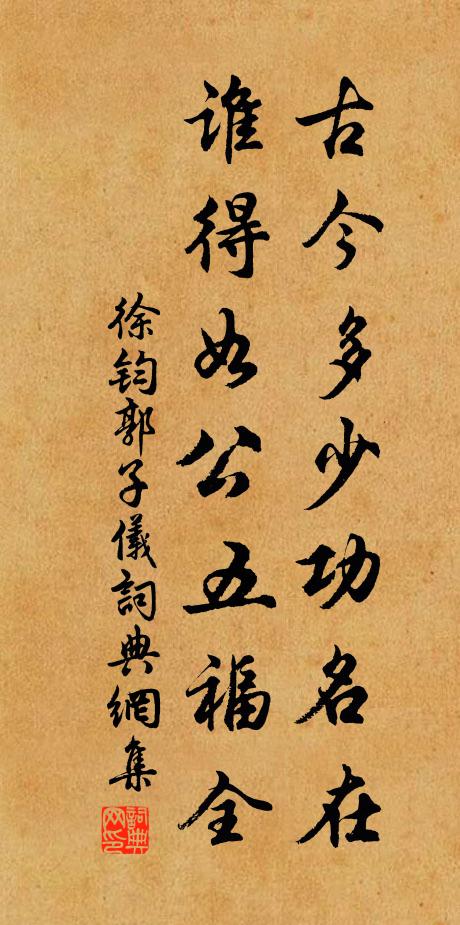 古今多少功名在
谁得如公五福全
徐钧郭子儀詞典網集
詞典网印